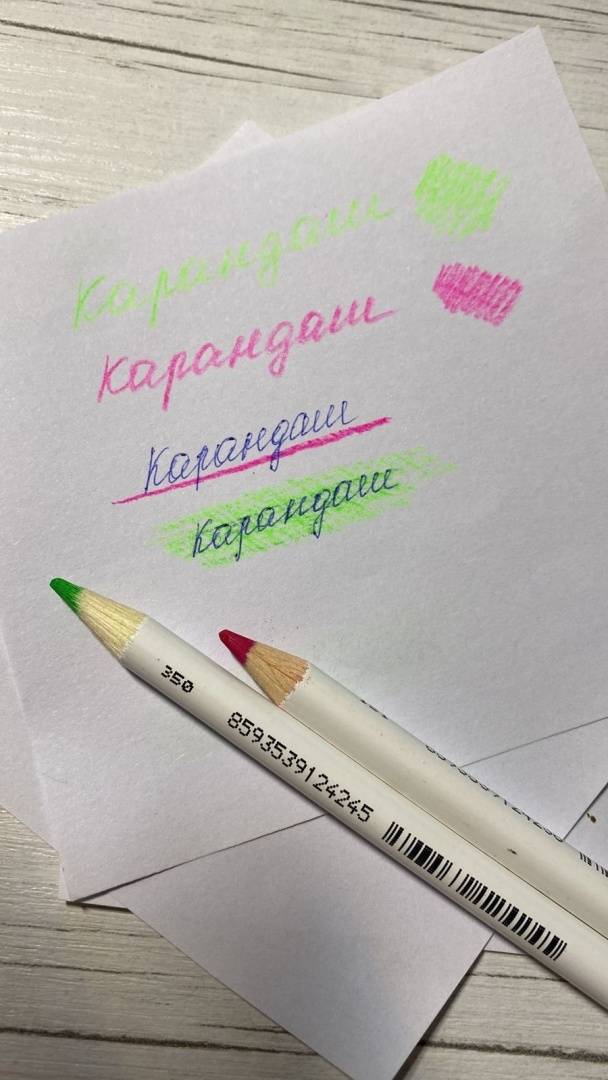 Карандаш
Карандаш
Карандаш
Карандаш
350
8593539124245